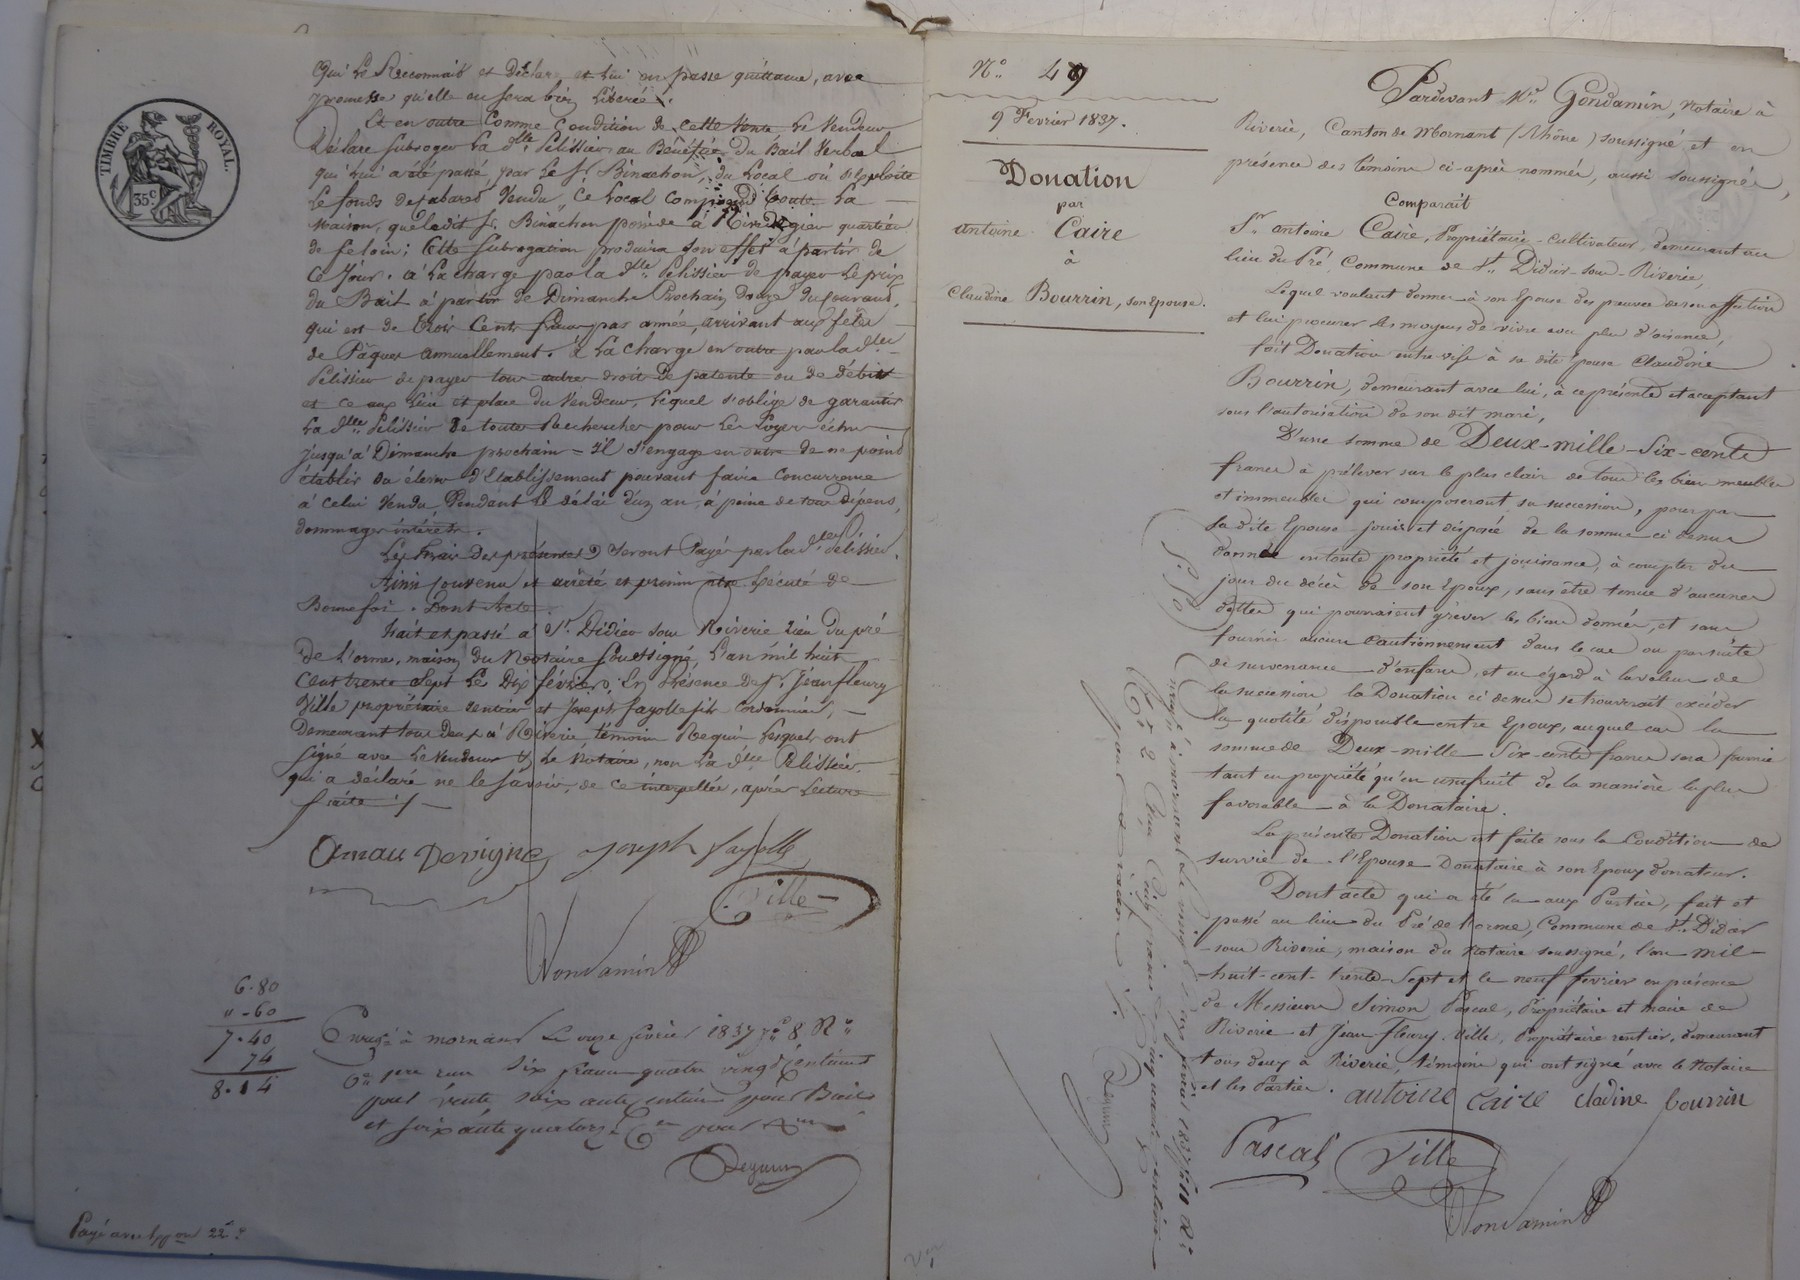 TIMBRE ROYAL
35 c
Qui le Reconnait et Déclare et lui en passe quittance, avec
promesse qu'elle en sera bien libérée.
Et en outre Comme Condition de cette Vente le Vendeur
Déclare subroger la dlle Pelissier au Bénéfice du Bail Verbal
qui lui a été passé par le Sr Binachon, du Local où s'exploite
le fonds de Cabaret Vendu, Ce Local Comprend toute la
Maison que ledit Sr Binachon possède à Rivedegier quartier
de feloin; Cette subrogation produira son effet à partir de
Ce Jour. à la charge par la dlle Pelissier de payer le prix
du Bail à partir de Dimanche Prochain douze du Courant,
qui est de trois Cents francs par année, arrivant aux fêtes
de Pâques Annuellement. à la charge en outre par la dlle
Pelissier de payer tous autres droits de patente ou de débit
et ce aux lieu et place du Vendeur, lequel s'oblige de garantir
la dlle Pelissier de toutes Recherches pour les loyers échus
jusqu'à Dimanche prochain = Il s'engage en outre de ne point
établir ou élever d'Etablissement pouvant faire Concurrence
à Celui Vendu, Pendant le délai d'un an, à peine de tous dépens,
dommages intérêts.
Les frais des présentes seront Payés par la dlle Pelissier.
Ainsi Convenu et arrêté et promis être Exécuté de
Bonne foi. Dont Acte.
Fait et passé à St Didier sous Riverie Lieu du pré
de l'orme, maison du Notaire Soussigné, L'an mil huit
Cent trente Sept Le Dix février, En Présence de Sr Jean fleury
Ville propriétaire rentier et Joseph fayolle fils Cordonnier,
Demeurant tous Deux à Riverie témoins Requis Lesquels ont
Signé avec le Vendeur & le Notaire, non la dlle Pelissier
qui a déclaré ne le savoir, de ce interpellée, après Lecture
faite ./.
Joseph fayolle
Ville
Gondamin
6.80
" - 60
7.40
74
8.14
Enregé à mornant le onze février 1837 fo 8 Ro
Cse 1ere reçu Six francs quatre vingt Centimes
pour vente, soixante Centimes pour Bail
et soixante quatorze Cen pour
No 49
9 Fevrier 1837.
Donation
par
antoine Caire
à
Claudine Bourrin, son Epouse.
Pardevant Me Gondamin, Notaire à
Riverie, Canton de Mornant (Rhône) soussigné, et en
présence des témoins ci-après nommés, aussi soussignés,
Comparait
Sr antoine Caire, Propriétaire-cultivateur, demeurant au
lieu du Pré, Commune de St Didier-sous-Riverie,
Lequel voulant donner à son Epouse des preuves de son affection
et lui procurer les moyens de vivre avec plus d'aisance,
fait Donation entre vifs à sa dite Epouse Claudine
Bourrin, demeurant avec lui, à ce présente et acceptant
sous l'autorisation de son dit mari,
D'une somme de Deux-mille-Six-cents
francs à prélever sur le plus clair de tous les biens meubles
et immeubles qui composeront sa succession, pour par
sa dite Epouse jouir et disposer de la somme ci dessus
donnée en toute propriété et jouissance, à compter du
jour du décès de son Epoux, sans être tenue d'aucunes
dettes qui pourraient grèver les biens donnés, et sans
fournir aucun cautionnement dans le cas ou par suite
de survenance d'enfans, et eu égard à la valeur de
la succession la Donation ci dessus se trouverait excéder
la quotité disponible entre Epoux, auquel cas la
somme de Deux-mille Six-cents francs sera fournie
tant en propriété qu'en usufruit de la manière la plus
favorable à la Donataire.
La présente Donation est faite sous la Condition de
survie de l'Epouse Donataire à son Epoux donateur.
Dont acte qui a été lu aux Parties, fait et
passé au lieu du Pré de l'orme, Commune de St Didier
sous Riverie, maison du Notaire soussigné, l'an mil-
huit-cent-trente-Sept et le neuf février en présence
de Messieurs Simon Pascal, Propriétaire et maire de
Riverie et Jean Fleury Ville, Propriétaire rentier, demeurant
tous deux à Riverie, témoins qui ont signé avec le Notaire
et les Parties.
antoine Caire Cladine bourrin
Pascal
Ville
Gondamin
Enregé à mornant le onze février 1837 fo 8 Ro
Cse 2 Reçu Cinq francs cinquante centimes